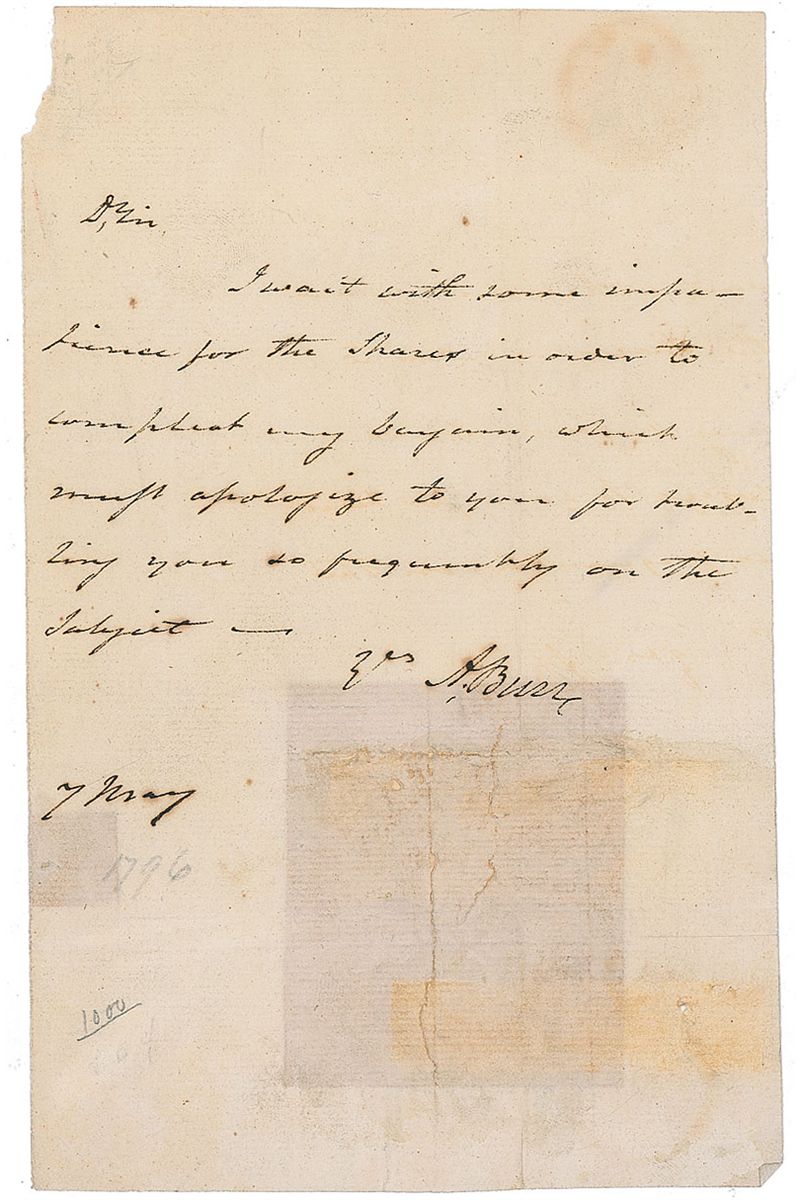 D, Sir
I wait with some impa-
tience for the Shares in order to
compleat my bargain, which
must apologize to you for troub-
ling you so frequently on the
Subject —
Yrs A, Burr
7 May
1796
1000